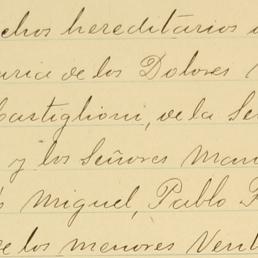 chos hereditarios
aria de los Dolores
Castiglioni, de la Se
y los Señores Man
Miguel, Pablo F
de los menores Vent